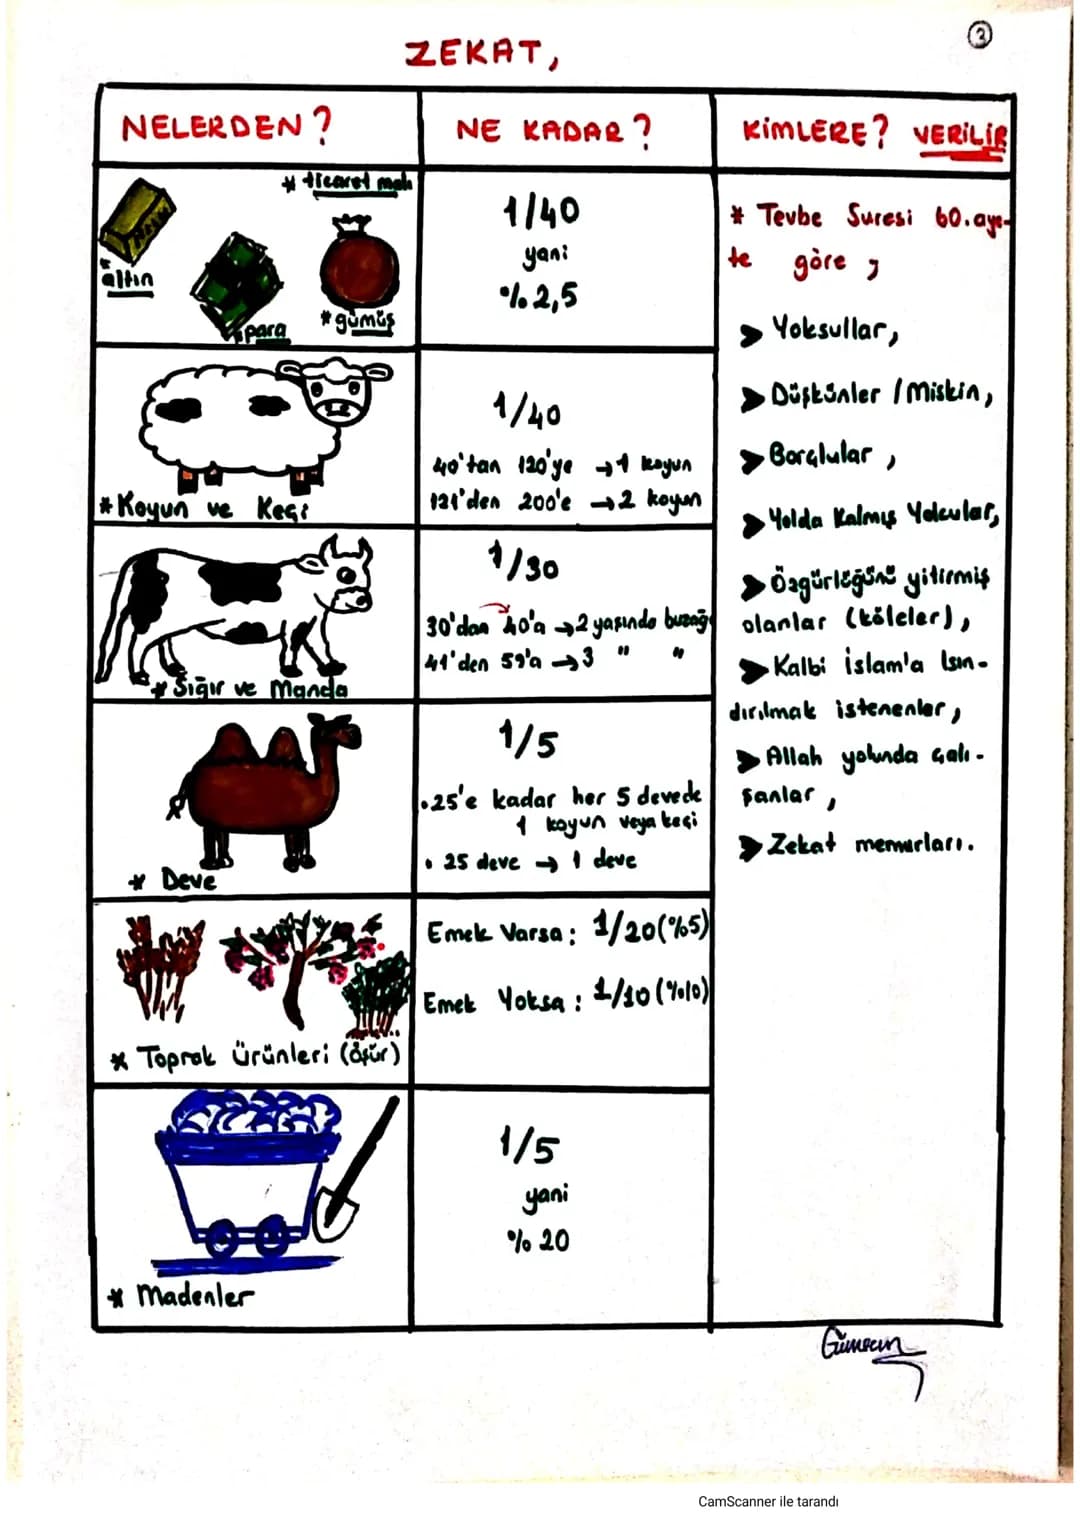 3
ZEKAT,
NELERDEN?
NE KADAR?
KİMLERE? VERİLİR
* ticaret malı
altın
para
*gümüş
1/40
yani
% 2,5
* Koyun ve Keçi
1/40
40'tan 120'ye →1 koyun
121'den 200'e →2 koyun
* Sığır ve Manda
1/30
30'dan 40'a →2 yaşında buzağı
41'den 59'a →3 " "
* Deve
1/5
.25'e kadar her 5 devede
1 koyun veya keçi
. 25 deve → 1 deve
* Toprak Ürünleri (öşür)
Emek Varsa: 1/20(%5)
Emek Yoksa: 1/10(%10)
* Madenler
1/5
yani
% 20
* Tevbe Suresi 60.aye-
te göre ;
➤ Yoksullar,
➤ Düşkünler / Miskin,
➤ Borçlular,
➤ Yolda Kalmış Yolcular,
➤ Özgürlüğünü yitirmiş
olanlar (köleler),
➤ Kalbi İslam'a Isın-
dırılmak istenenler,
➤ Allah yolunda çalı-
şanlar,
➤ Zekat memurları.
CamScanner ile tarandı